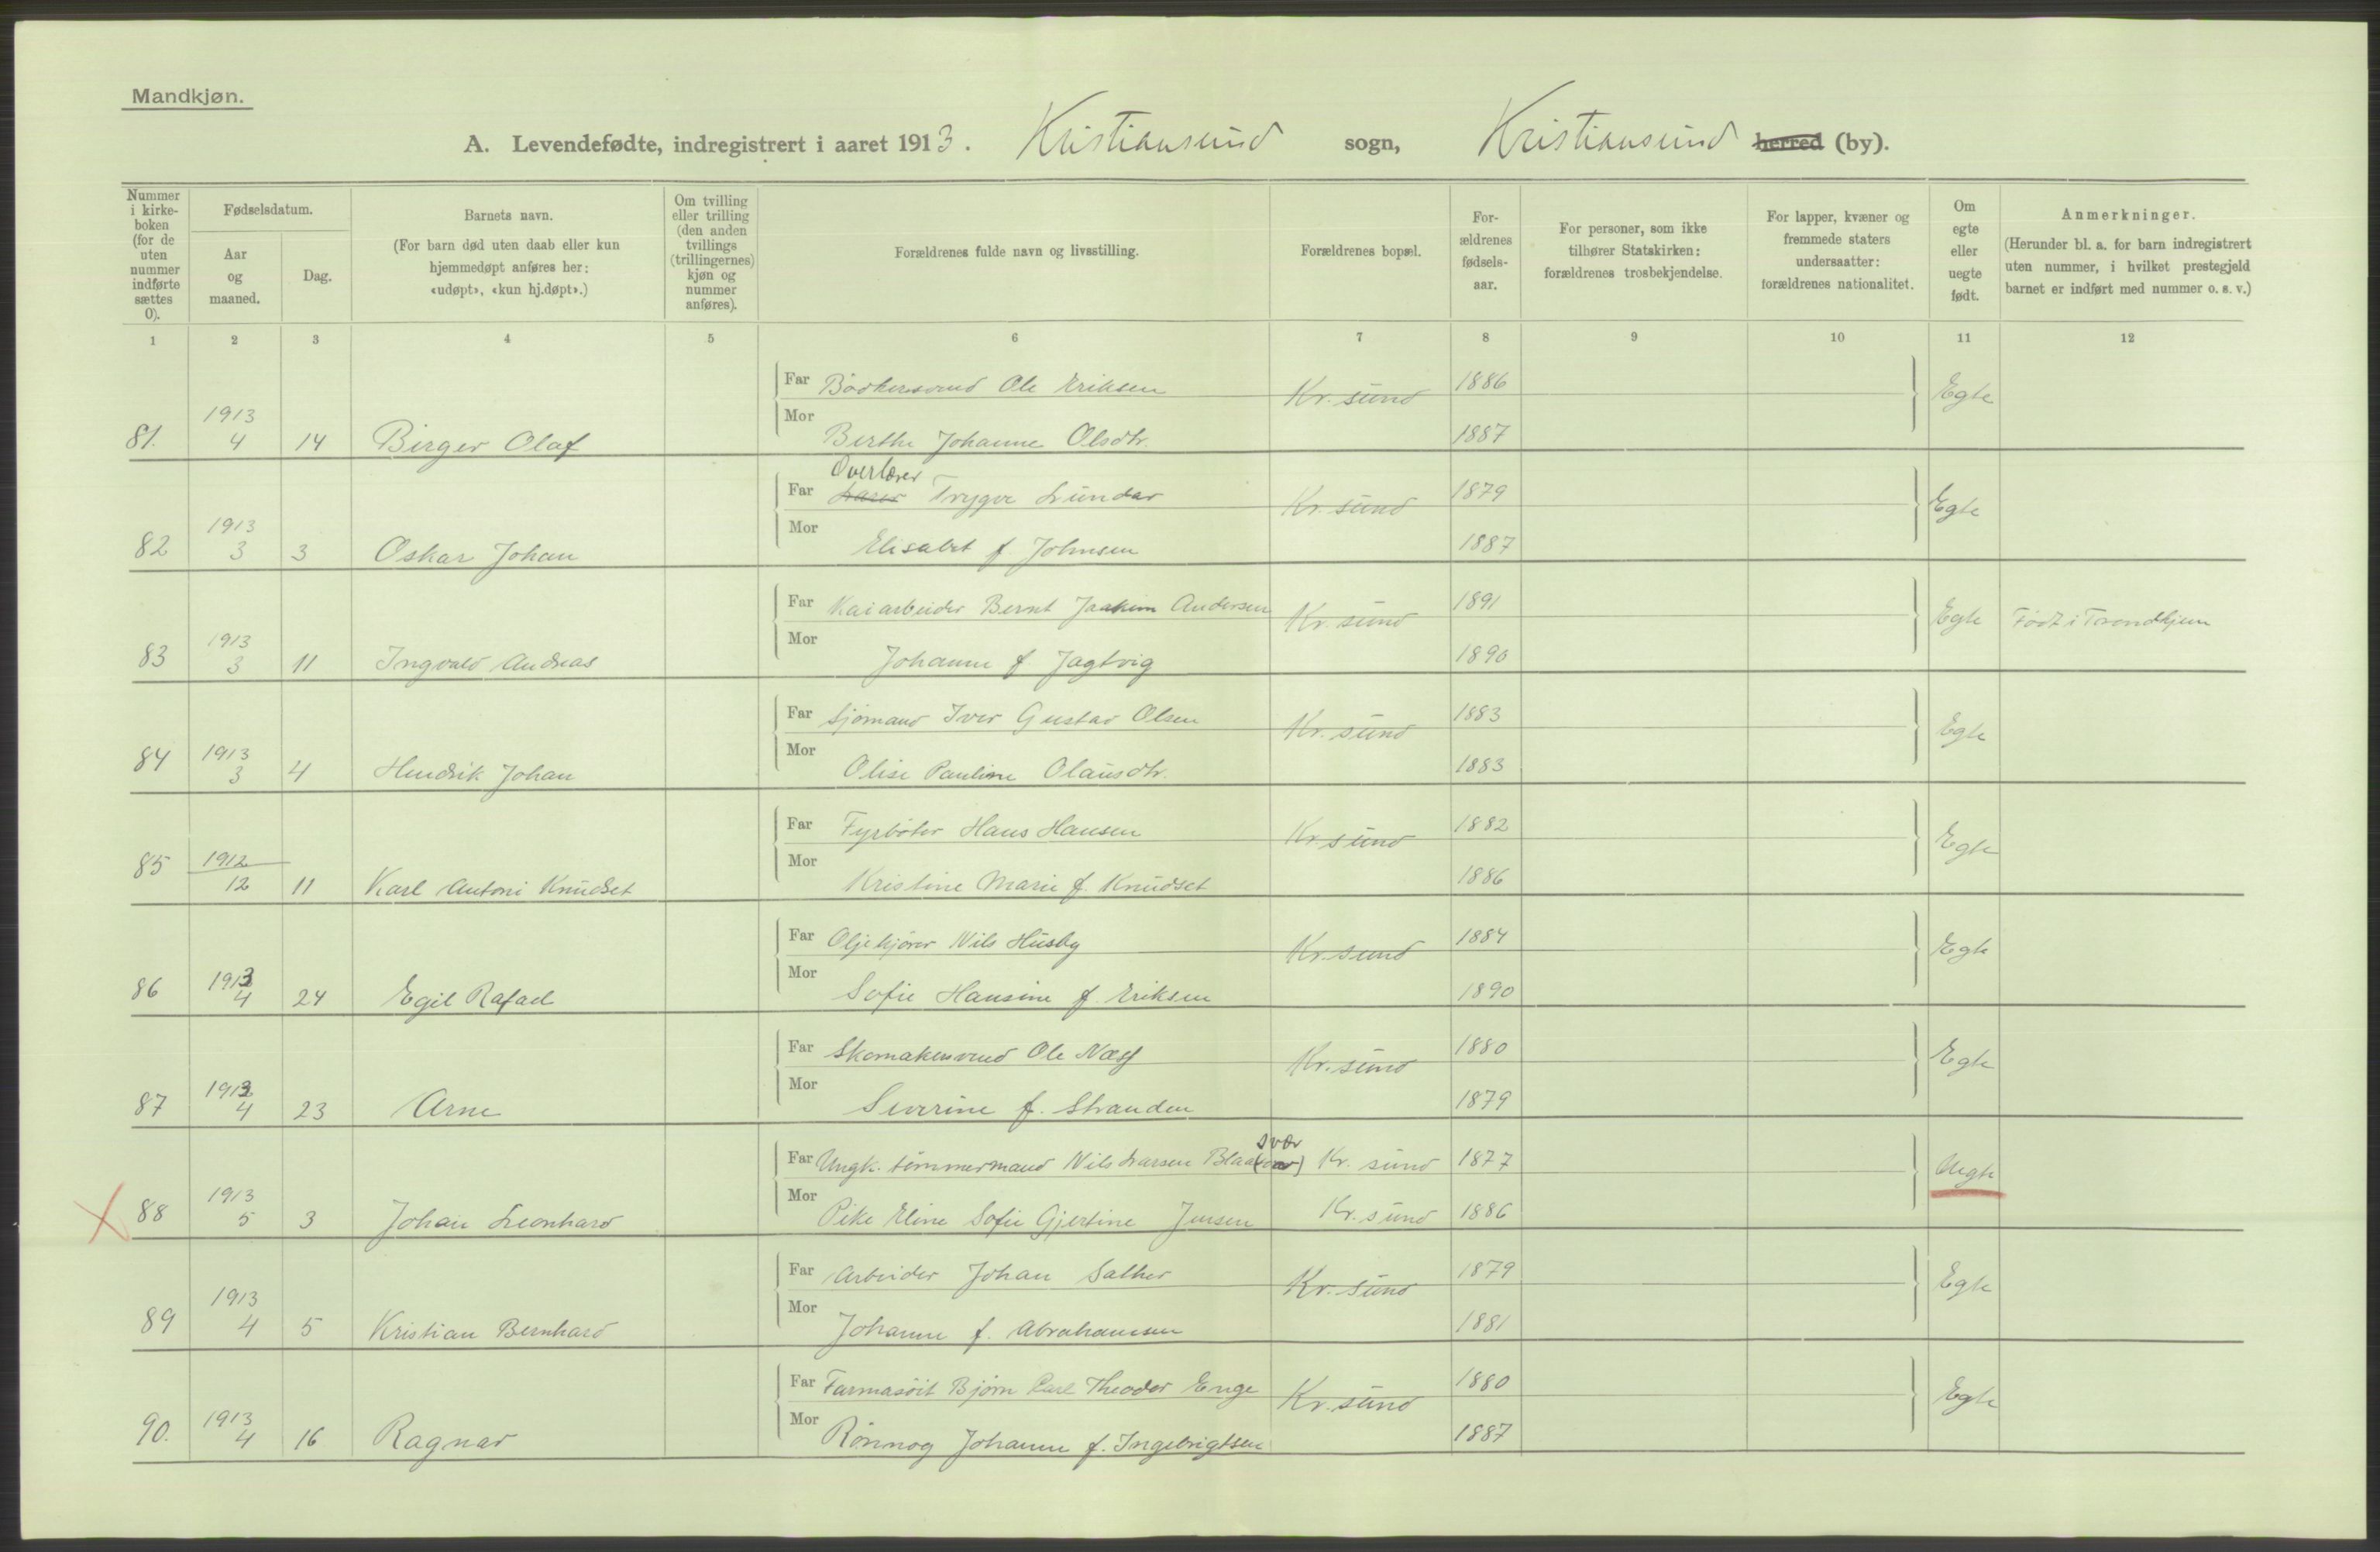 Mandkjøn.
A. Levendefødte, indregistrert i aaret 1913. Kristiansund sogn, Kristiansund herred (by).
Nummer i kirke-boken (for de uten nummer indførte sættes 0).
Fødselsdatum.
Aar og maaned.
Dag.
Barnets navn.
(For barn død uten daab eller kun hjemmedøpt anføres her: «udøpt», «kun hj.døpt».)
Om tvilling eller trilling (den anden tvillings (trillingernes) kjøn og nummer anføres).
Forældrenes fulde navn og livsstilling.
Forældrenes bopæl.
For-ældrenes fødsels-aar.
For personer, som ikke tilhører Statskirken: forældrenes trosbekjendelse.
For lapper, kvæner og fremmede staters undersaatter: forældrenes nationalitet.
Om egte eller uegte født.
Anmerkninger.
(Herunder bl. a. for barn indregistrert uten nummer, i hvilket prestegjeld barnet er indført med nummer o. s. v.)
1 2 3 4 5 6 7 8 9 10 11 12
Far Bødkersvend Ole Eriksen Kr. sund 1886 Egte
81. 1913 4 14 Birger Olaf
Mor Berthe Johanne Olsdtr. 1887
Overlærer
Far Lærer Trygve Lundar Kr. sund 1879 Egte
82 1913 3 3 Oskar Johan
Mor Elisabet f. Johnsen 1887
Far Kaiarbeider Bernt Joakim Andersen Kr. sund 1891 Egte Født i Trondhjem
83 1913 3 11 Ingvald Andreas
Mor Johanne f Jagtvig 1890
Far Sjømand Iver Gustav Olsen Kr. sund 1883 Egte
84 1913 3 4 Hendrik Johan
Mor Olise Pauline Olausdtr. 1883
Far Fyrbøter Hans Hansen Kr. sund 1882 Egte
85 1912 12 11 Karl Antoni Knudset
Mor Kristine Marie f. Knudset 1886
Far Oljehjører Nils Husby Kr. sund 1884 Egte
86 1913 4 24 Egil Rafael
Mor Sofie Hansine f. Eriksen 1890
Far Skomakersvend Ole Næss Kr. sund 1880 Egte
87 1913 4 23 Arne
Mor Severine f. Stranden 1879
svær
Far Ungk. tømmermand Nils Larsen Kr. sund 1877 Uegte
88 1913 5 3 Johan Leonhard
Mor Pike Eline Sofie Gjertine Jensen Kr. sund 1886
Far Arbeider Johan Sather Kr. sund 1879 Egte
89 1913 4 5 Kristian Bernhard
Mor Johanne f. Abrahamsen 1881
Far Farmasöit Bjørn Carl Theodor Enge Kr. sund 1880 Egte
90. 1913 4 16 Ragnar
Mor Rønnog Johanne f. Ingebrigtsen 1887